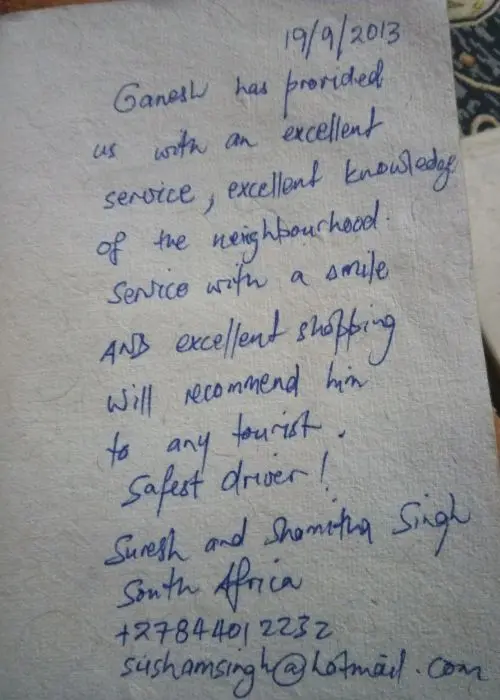 19/9/2013
Ganesh has provided
us with an excellent
service, excellent knowledge
of the neighbourhood.
Service with a smile
AND excellent shopping
Will recommend him
to any tourist.
Safest driver!
Suresh and Shamitha Singh
South Africa
+27844012232
sushamsingh@hotmail.com